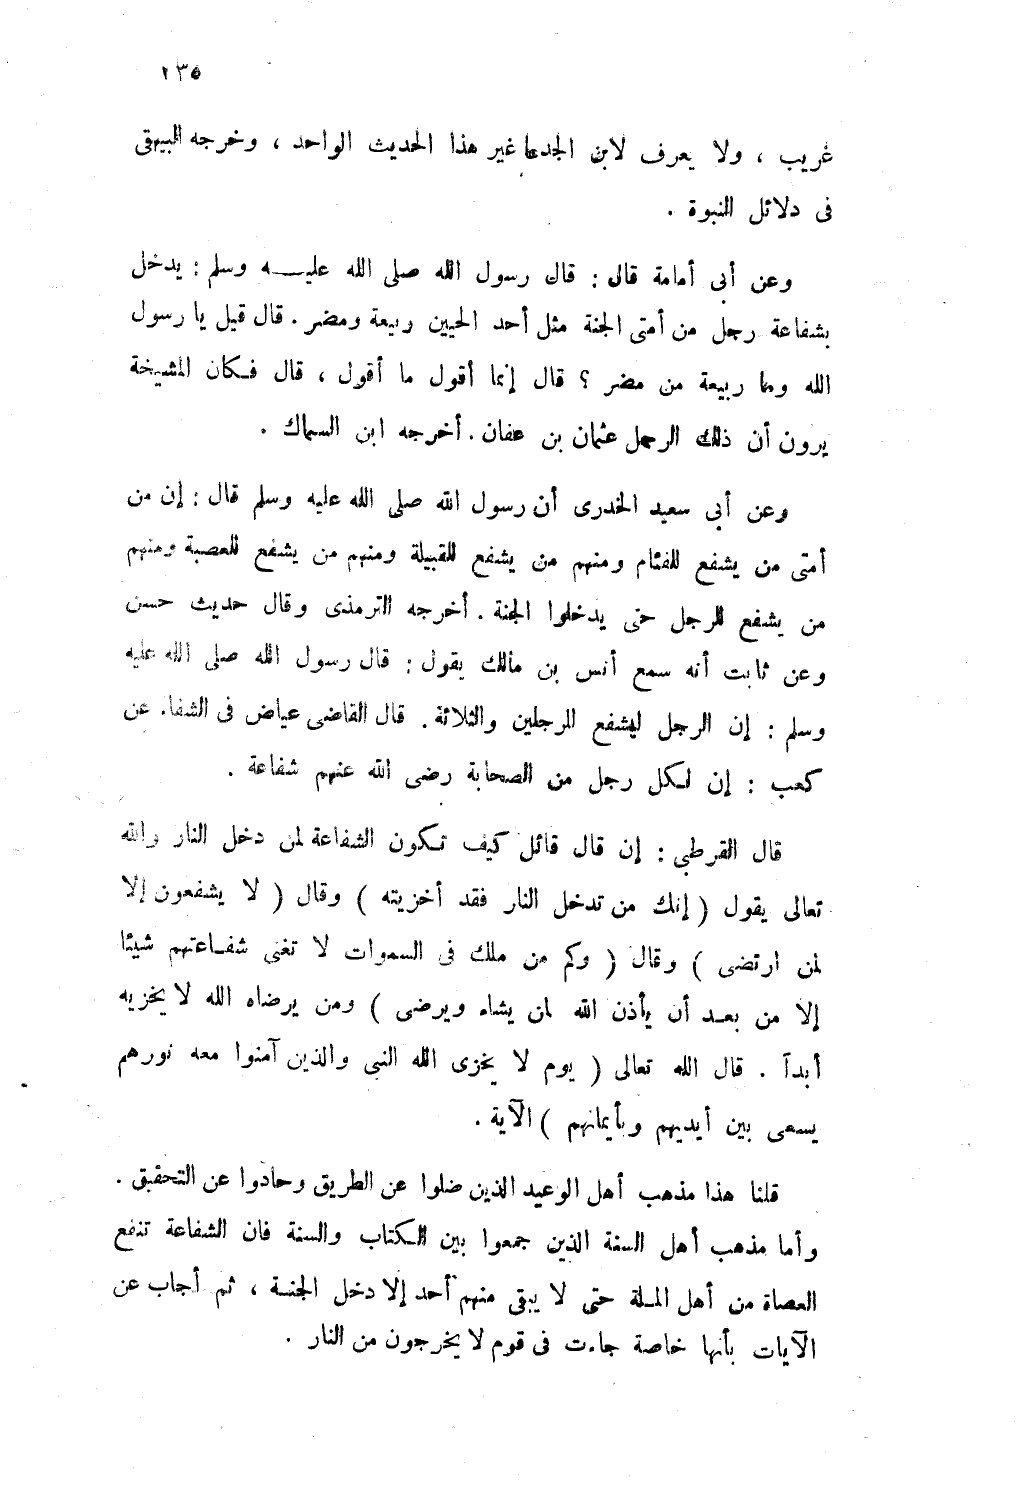 ١٣٥
غريب ، ولا يعرف لابن الجدعا غير هذا الحديث الواحد ، وخرجه البيهقى
فى دلائل النبوة .
وعن أبى أمامة قال : قال رسول الله صلى الله عليـــه وسلم : يدخل
بشفاعة رجل من أمتى الجنة مثل أحد الحيين ربيعة ومضر . قال قيل يا رسول
الله وما ربيعة من مضر ؟ قال إنما أقول ما أقول ، قال فـكان المشيخة
يرون أن ذلك الرجل عثمان بن عفان . أخرجه ابن السماك .
وعن أبى سعيد الخدرى أن رسول الله صلى الله عليه وسلم قال : إن من
أمتى من يشفع للفئام ومنهم من يشفع للقبيلة ومنهم من يشفع للعصبة ومنهم
من يشفع للرجل حتى يدخلوا الجنة . أخرجه الترمذى وقال حديث حسن
وعن ثابت أنه سمع أنس بن مالك يقول : قال رسول الله صلى الله عليه
وسلم : إن الرجل ليشفع للرجلين والثلاثة . قال القاضى عياض فى الشفاء عن
كعب : إن لـكل رجل من الصحابة رضى الله عنهم شفاعة .
قال القرطبى : إن قال قائل كيف تـكون الشفاعة لمن دخل النار والله
تعالى يقول ( إنك من تدخل النار فقد أخزيته ) وقال ( لا يشفعون إلا
لمن ارتضى ) وقال ( وكم من ملك فى السموات لا تغنى شفـاعتهم شيئا
إلا من بعـد أن يأذن الله لمن يشاء ويرضى ) ومن يرضاه الله لا يخزيه
أبدآ . قال الله تعالى ( يوم لا يخزى الله النبى والذين آمنوا معه نورهم
يسعى بين أيديهم وبأيمانهم ) الآية .
قلنا هذا مذهب أهل الوعيد الذين ضلوا عن الطريق وحادوا عن التحقيق .
وأما مذهب أهل السنة الذين جمعوا بين الـكتاب والسنة فان الشفاعة تنفع
العصاة من أهل المـلة حتى لا يبقى منهم أحد إلا دخل الجنـة ، ثم أجاب عن
الآيات بأنها خاصة جاءت فى قوم لا يخرجون من النار .